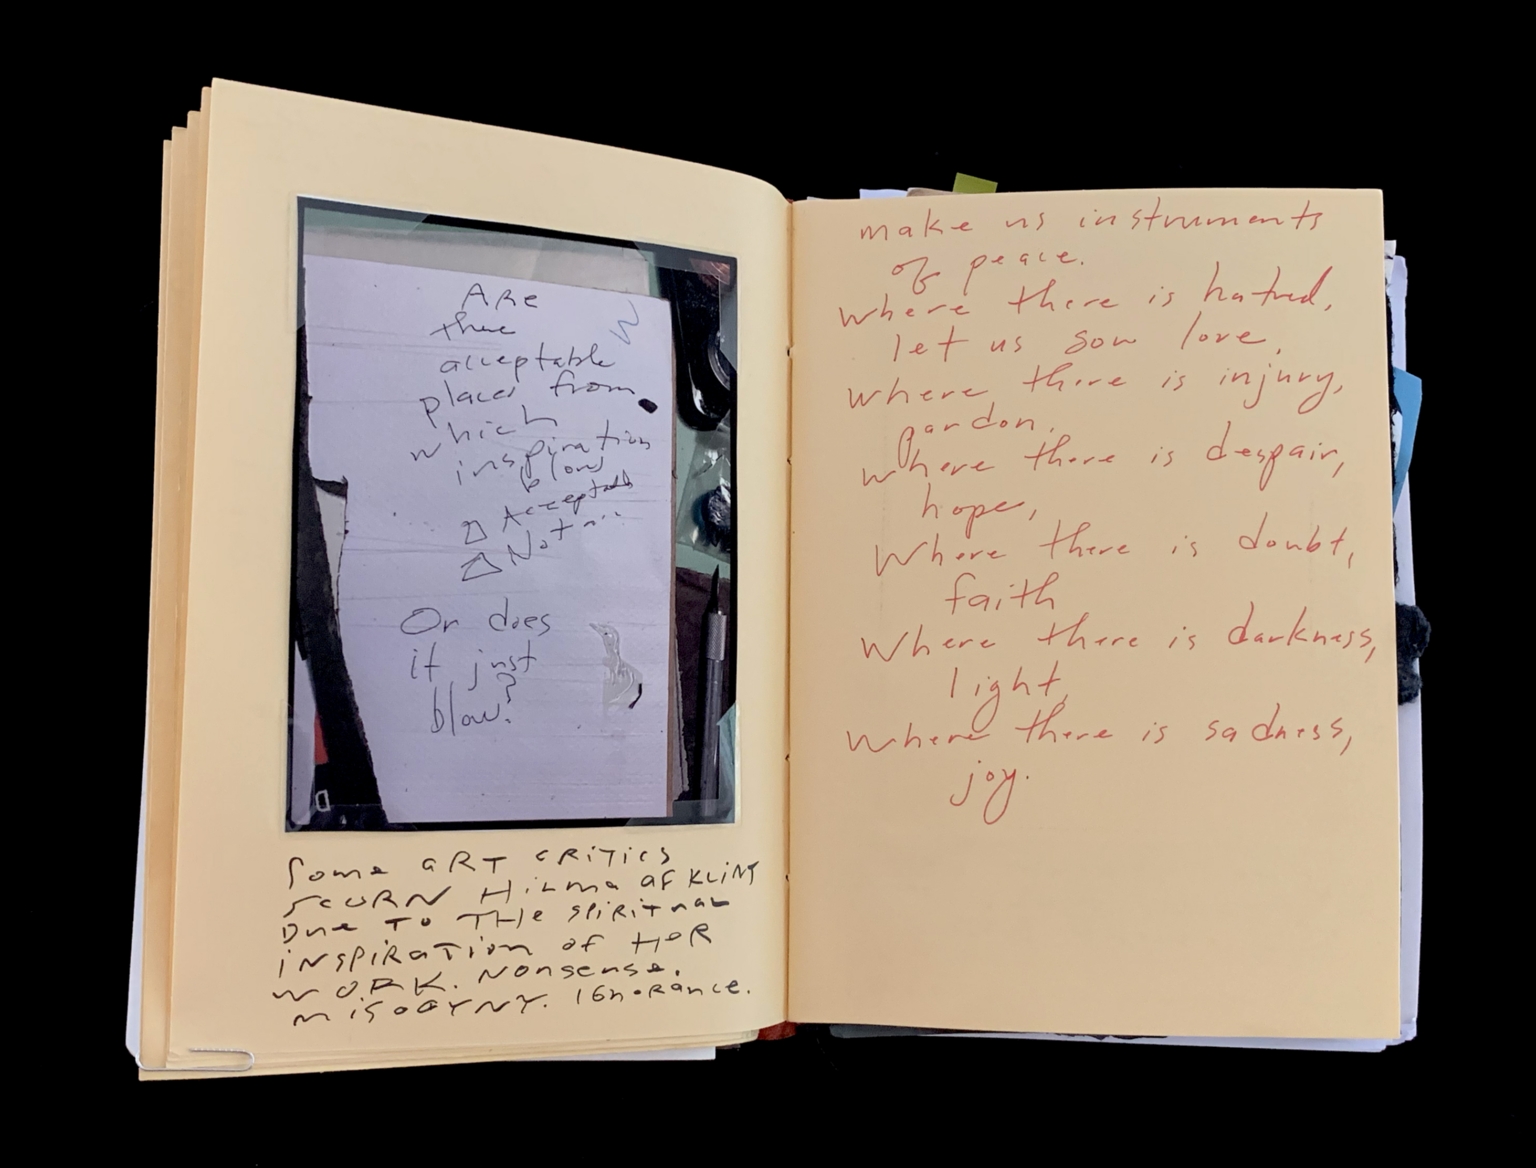 Are
there
acceptable
places from
which
inspiration
blows
Acceptable
Not
Or does
it just
blow?
Some ART CRITICS
SCORN HILMA AF KLINT
DUE TO THE SPIRITUAL
INSPIRATION OF HER
WORK. NONSENSE.
MISOGYNY. IGNORANCE.
make us instruments
of peace.
where there is hatred,
let us sow love,
where there is injury,
pardon,
where there is despair,
hope,
Where there is doubt,
faith
Where there is darkness,
light,
Where there is sadness,
joy.